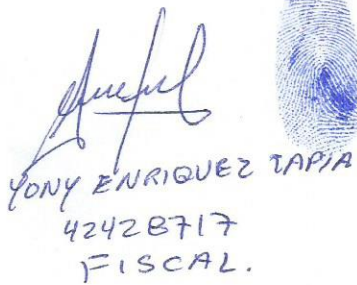 YONY ENRIQUEZ TAPIA
42428717
FISCAL.